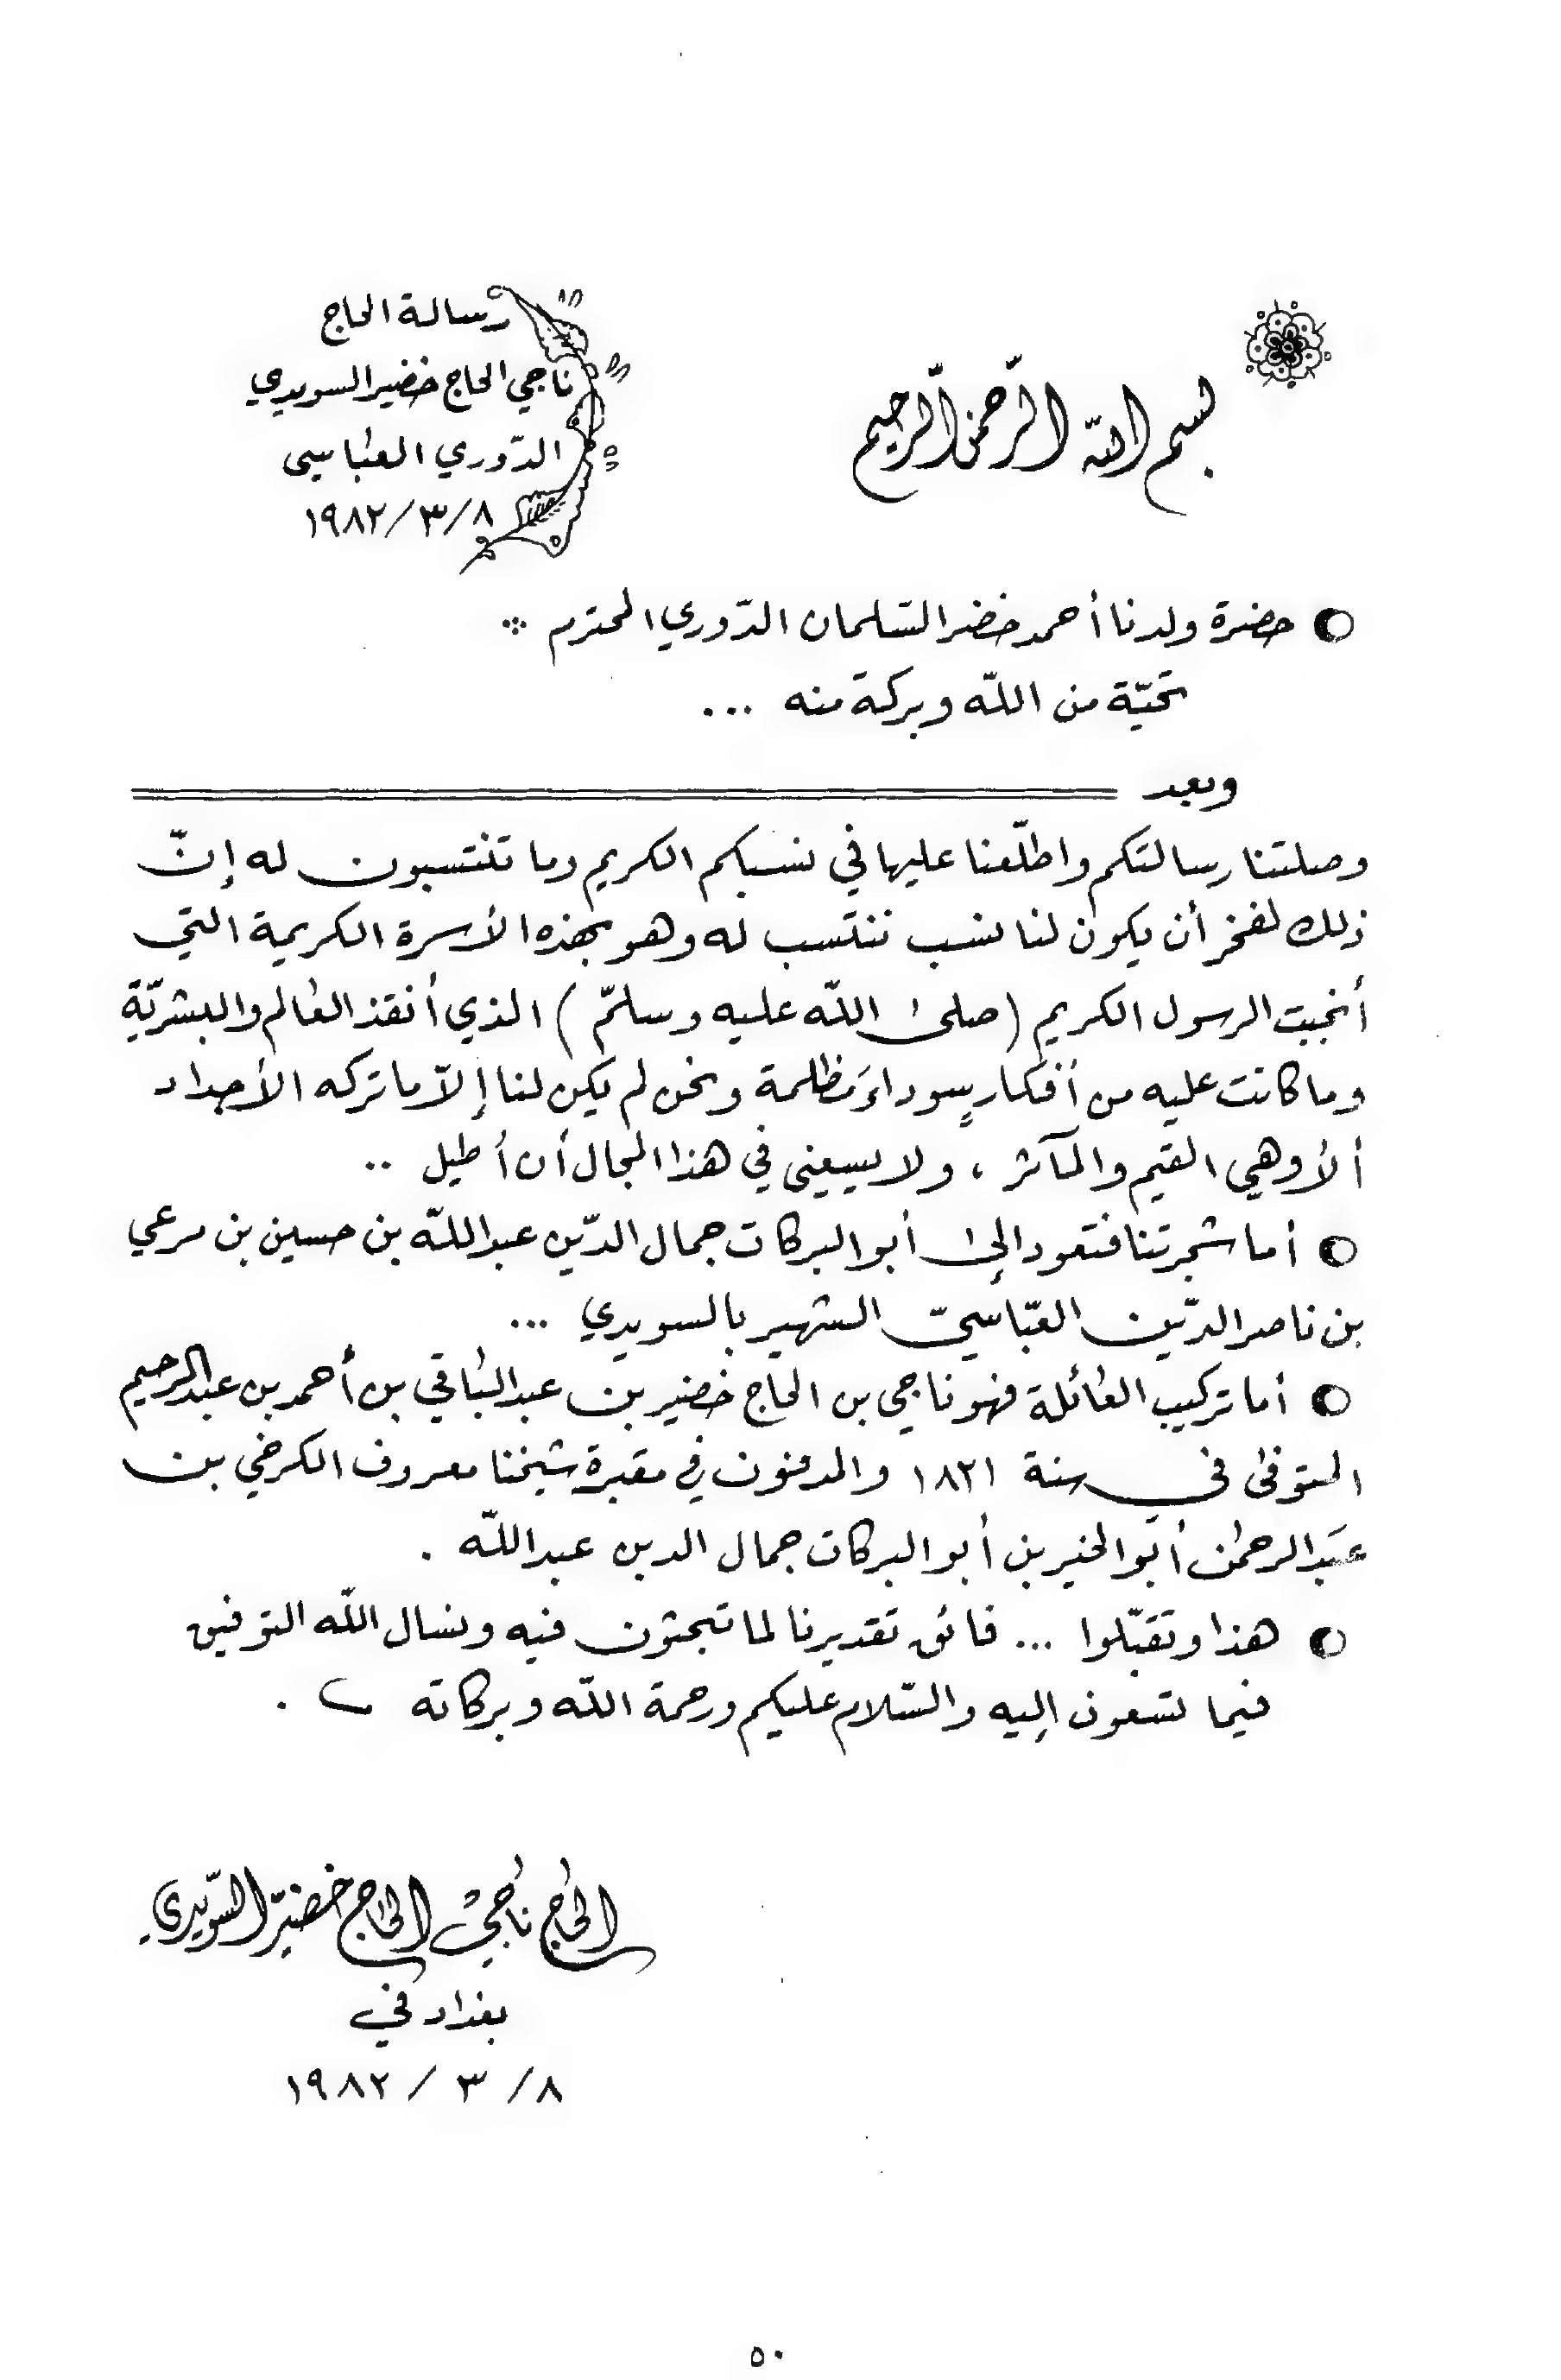 بسم الله الرّحمن الرّحيم
رسالة الحاج
ناجي الحاج خضير السويدي
الدّوري العبّاسي
١٩٨٢/٣/٨
حضرة ولدنا أحمد خضر السّلمان الدّوري المحترم
تحيّة من اللّه وبركة منه ...
وبعد
وصلتنا رسالتكم واطلّعنا عليها في نسبكم الكريم وما تنتسبون له إنّ
ذلك لفخر أن يكون لنا نسب ننتسب له وهو بهذه الأسرة الكريمة التي
أنجبت الرسول الكريم (صلى اللّه عليه وسلمّ) الذي أنقذ العالم والبشريّة
وما كانت عليه من أفكارٍ سوداءَ مظلمة ونحن لم يكن لنا إلاّ ما تركه الأجداد
ألا وهي القيم والمآثر ، ولا يسيعني في هذا المجال أن أطيل ..
أما شجرتنا فتعود إلى أبو البركات جمال الدّين عبد اللّه بن حسين بن مرعي
بن ناصر الدّين العبّاسيّ الشهير بالسويدي ...
أما تركيب العائلة فهو ناجي بن الحاج خضير بن عبد الباقي بن أحمد بن عبد الرحيم
المتوفى في سنة ١٨٢١ والمدفون في مقبرة شيخنا معروف الكرخي بن
عبد الرحمن أبو الخير بن أبو البركات جمال الدين عبد اللّه .
هذا وتقبّلوا ... فائق تقديرنا لما تبحثون فيه ونسال اللّه التوفيق
فيما تسعون إليه والسّلام عليكم ورحمة اللّه وبركاته .
الحاج ناجي الحاج خضير السّويدي
بغداد في
١٩٨٢ / ٣ / ٨
٥٠